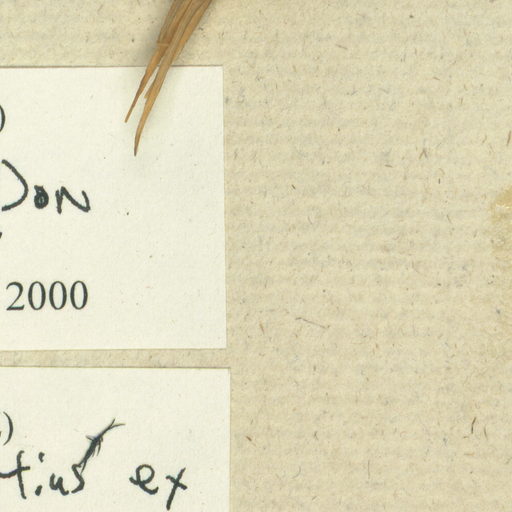 )
Don
2000
)
tius ex